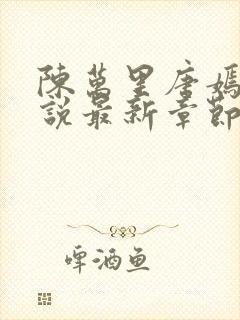 陳萬里唐嫣
說最新章節
啤酒鱼